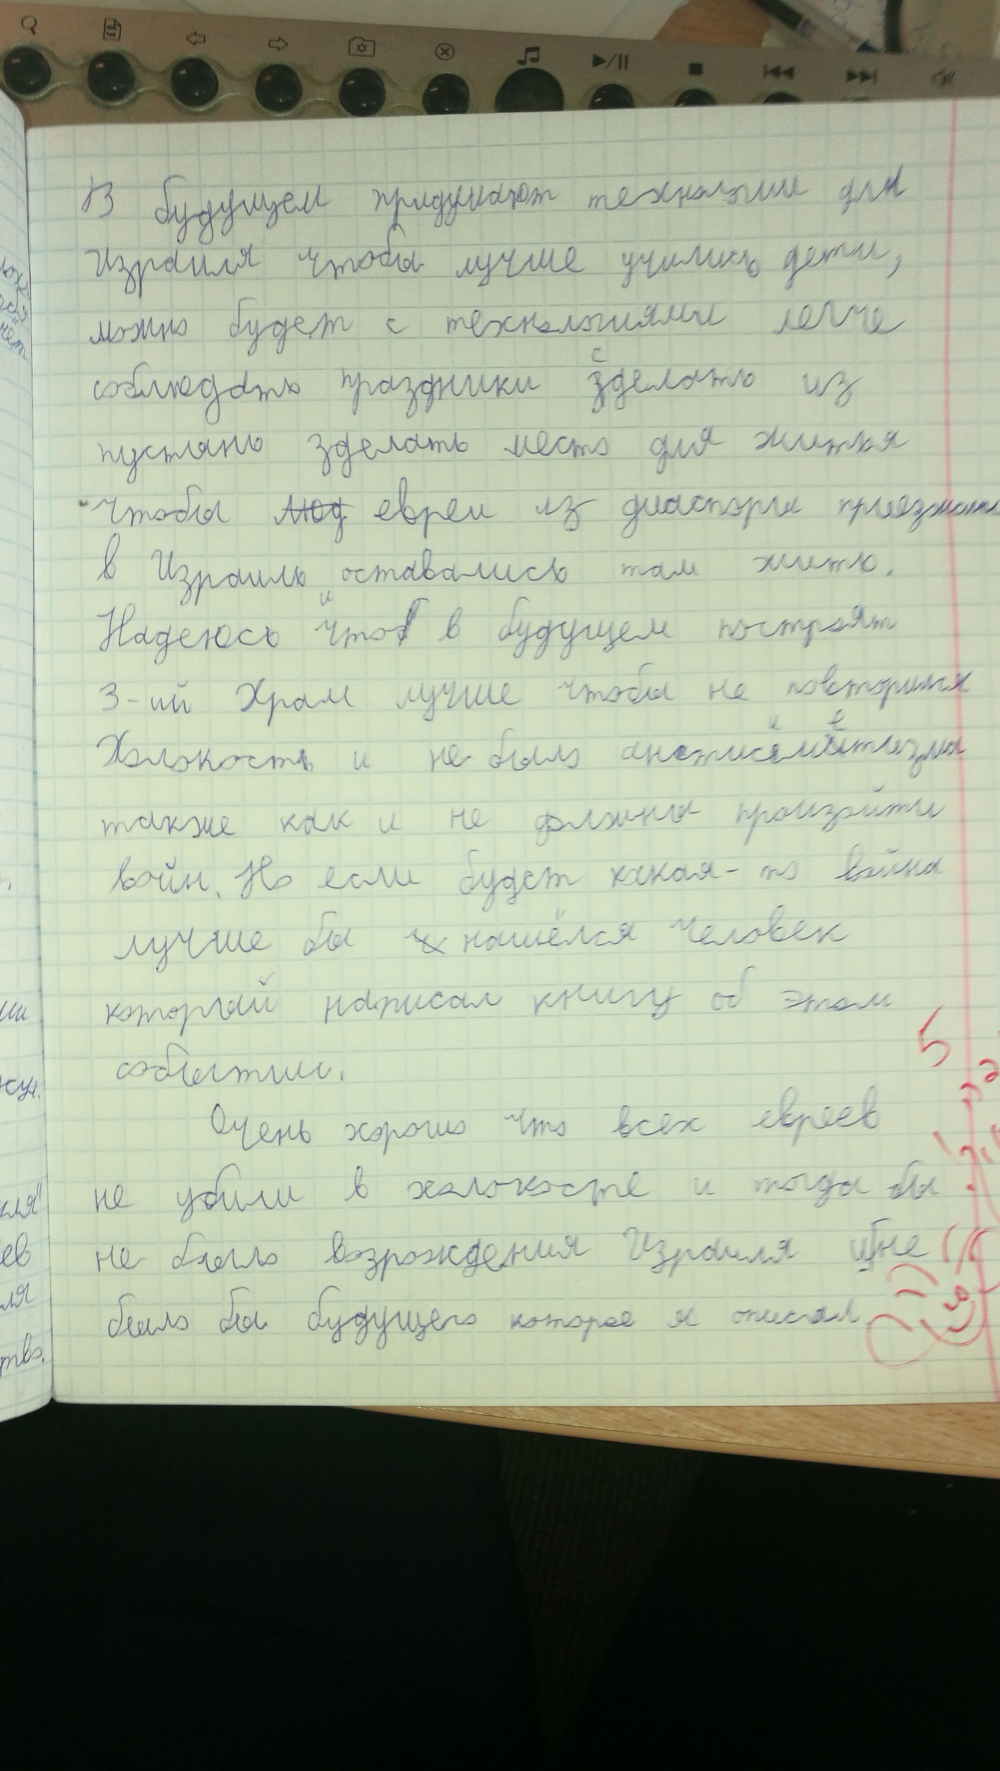 В будущем придумают технологии для
Израиля чтобы лучше учились дети,
можно будет с технологиями легче
соблюдать праздники зделать из
пустынь зделать место для житья
чтобы евреи из диаспоры приезжали
в Израиль оставались там жить.
Надеюсь что в будущем построят
3-ий Храм лучше чтобы не повторился
Холокость и не было
также как и не должны произойти
войн. Но если будет какая-то война
лучше бы нашёлся человек
который написал книгу об этом
событии.
5
Очень хорошо что всех евреев
не убили в холокосте и тогда бы
не было возрождения Израиля и не
было бы будущего которое я описал